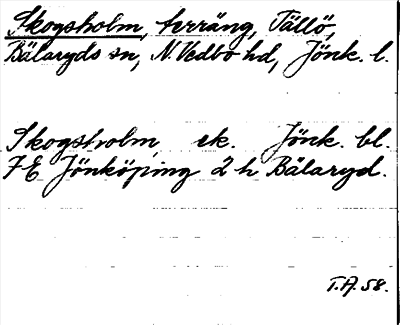 Skogsholm, terräng, Tällö,
Bälaryds sn, N. Vedbo hd, Jönk. l.
Skogsholm ek. Jönk. bl.
7E Jönköping 2 h Bälaryd.
T.A. 58.